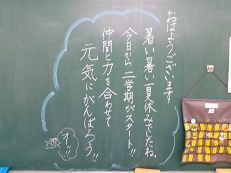 おはようございます
暑い暑い夏休みでしたね。
今日から二学期がスタート!!
仲間と力を合わせて
元気にがんばろう!!
オーッ!!